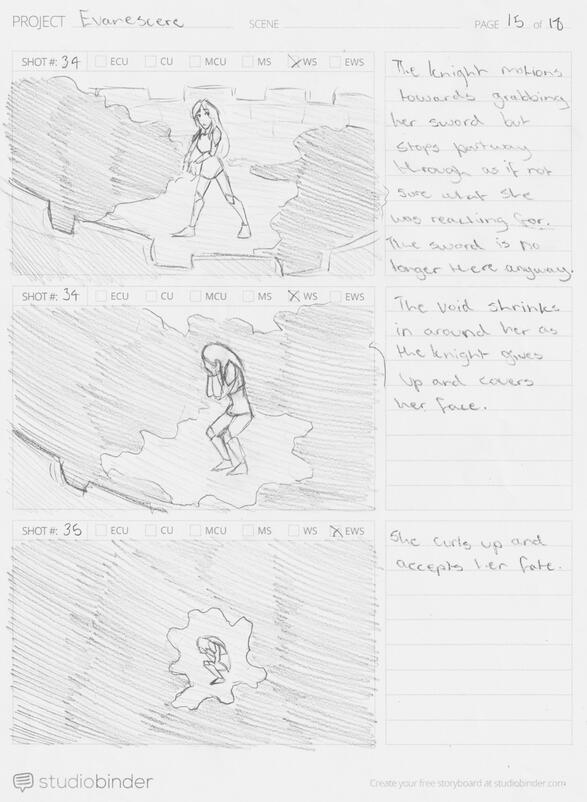 PROJECT Evanescere SCENE PAGE 15 of 18
SHOT #: 34 ECU CU MCU MS WS EWS
The knight motions
towards grabbing
her sword but
stops partway
through as if not
sure what she
was reaching for.
The sword is no
longer there anyway.
SHOT #: 34 ECU CU MCU MS WS EWS
The void shrinks
in around her as
the knight gives
up and covers
her face.
SHOT #: 35 ECU CU MCU MS WS EWS
She curls up and
accepts her fate.
studiobinder
Create your free storyboard at studiobinder.com